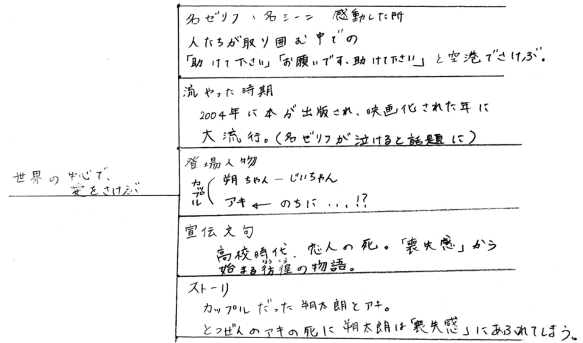 世界の中心で、
愛をさけぶ
名ゼリフ、名シーン 感動した所
人たちが取り囲む中での
「助けて下さい」「お願いです、助けて下さい」と空港でさけぶ。
流やった時期
2004年に本が出版され、映画化された年に
大流行。(名ゼリフが泣けると話題に)
登場人物
カップル
朔ちゃん ー じいちゃん
アキ ← のちに...!?
宣伝文句
高校時代、恋人の死。「喪失感」から
始まる彷徨の物語。
ストーリ
カップルだった朔太朗とアキ。
とつぜんのアキの死に朔太朗は「喪失感」にあふれてしまう。